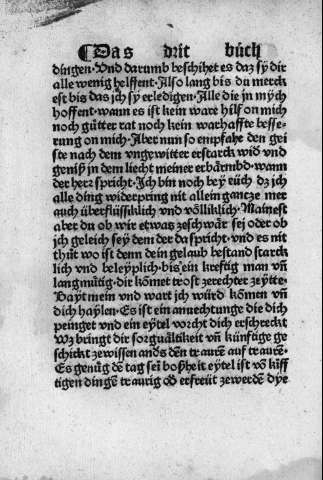 Das drit büch
dingen·Vnd darumb beschihet es daz sy dir
alle wenig helffent·Also lang bis du merck
est bis das jch sy erledigen·Alle die in mych
hoffent·wann es ist kein ware hilf on mich
noch gütter rat noch kein warhaffte besse-
rung on mich·Aber nun so empfahe den gei
ste nach dem vngewitter erstarck wid vnd
geniß in dem liecht meiner erbärmbd·wann
der herr spricht·Ich bin noch bey eüch dz jch
alle ding widerpring nit allein gantze mer
auch überflüssiklich vnd völliklich·Mainest
aber du ob wir etwaz zeschwär sej oder ob
jch geleich seÿ dem der da spricht·vnd es nit
thüt wo ist denn dein gelaub bestand starck
lich vnd beleyplich·bis ein kreftig man vñ
langmütig·dir kömet trost zerechter zeytte·
Bayt mein vnd wart jch würd kömen vñ
dich haylen·Es ist ein anvechtunge die dich
peinget vnd ein eytel vorcht dich erschreckt
Wz bringt dir sorguältikeit vñ künftige ge
schickt zewissen ands deñ traurē auf traurē·
Es genüg dē tag sei boßheit eytel ist vō kiff
tigen dingē traurig od erfreüt zewerdē dye